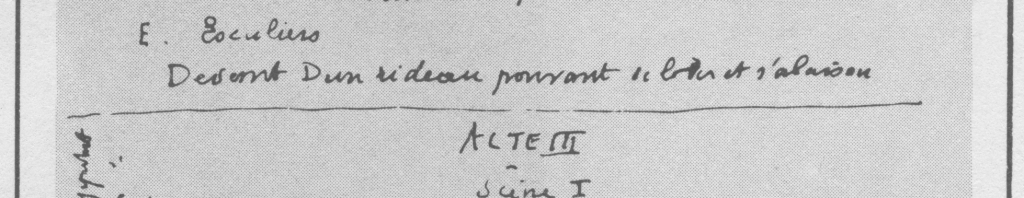 E. Escaliers
Devant D'un rideau pouvant se lever et s'abaisser
ACTE III
Scène I